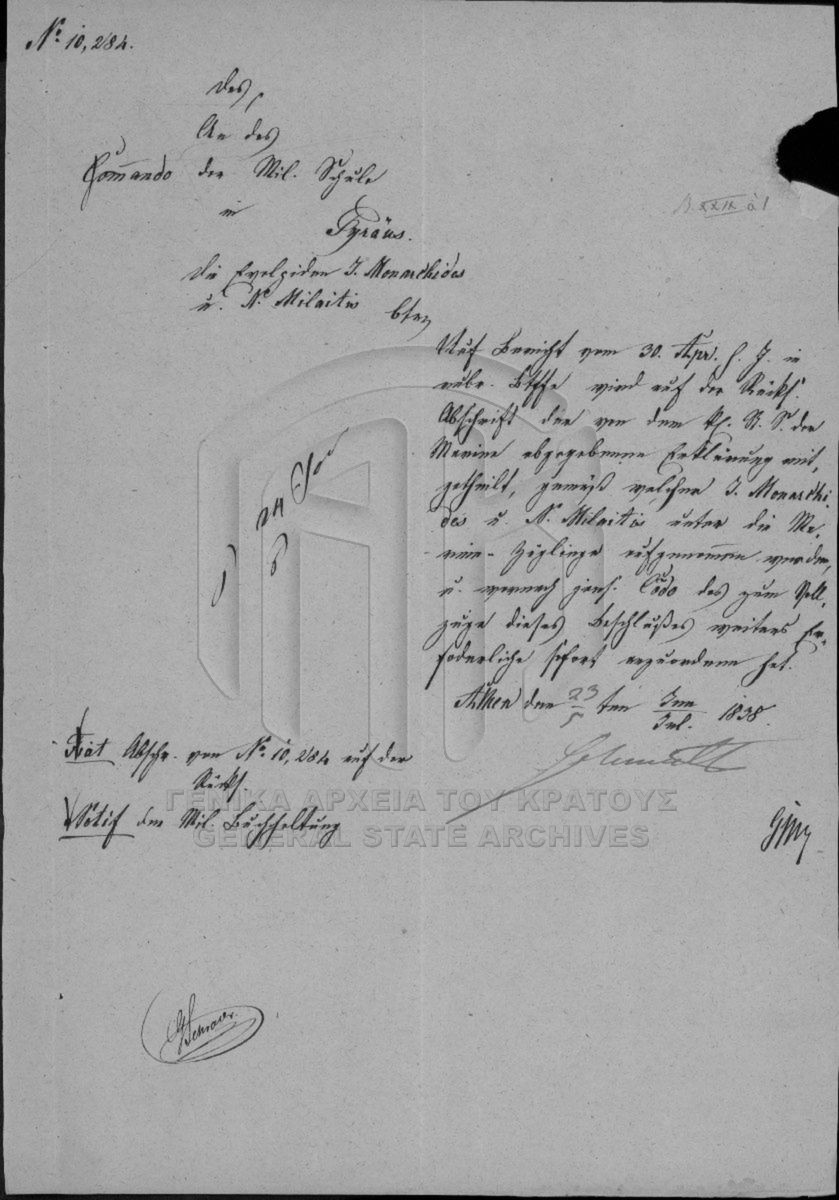 No 10,284.
des
An das
Commando der Mil. Schule
in
Pyräus.
B. XXIX à 1
Die Evelpiden J. Monarchides
u. N. Milaitis
btr.
Auf Bericht vom 30. Apr. h. J. in
rubr. Btffe wird auf der Rücks.
Abschrift der von dem k. St. S. der
Marine abgegebenen Erklärung mit,
getheilt, gemäß welcher J. Monarchi
des u. N. Milaitis unter die Ma,
rine-Zöglinge aufgenommen werden,
u. wornach jens. Codo das zum Voll,
zuge dieses Beschlußes weiters Er-
foderliche sofort anzuordnen hat.
Athen den 23/5 ten Jun/Jul. 1838.
24
Fiat Abschr. von No 10,284 auf der
Rücks
Notif der Mil. Buchhaltung
Schmaltz
Schrader
ΓΕΝΙΚΑ ΑΡΧΕΙΑ ΤΟΥ ΚΡΑΤΟΥΣ
GENERAL STATE ARCHIVES